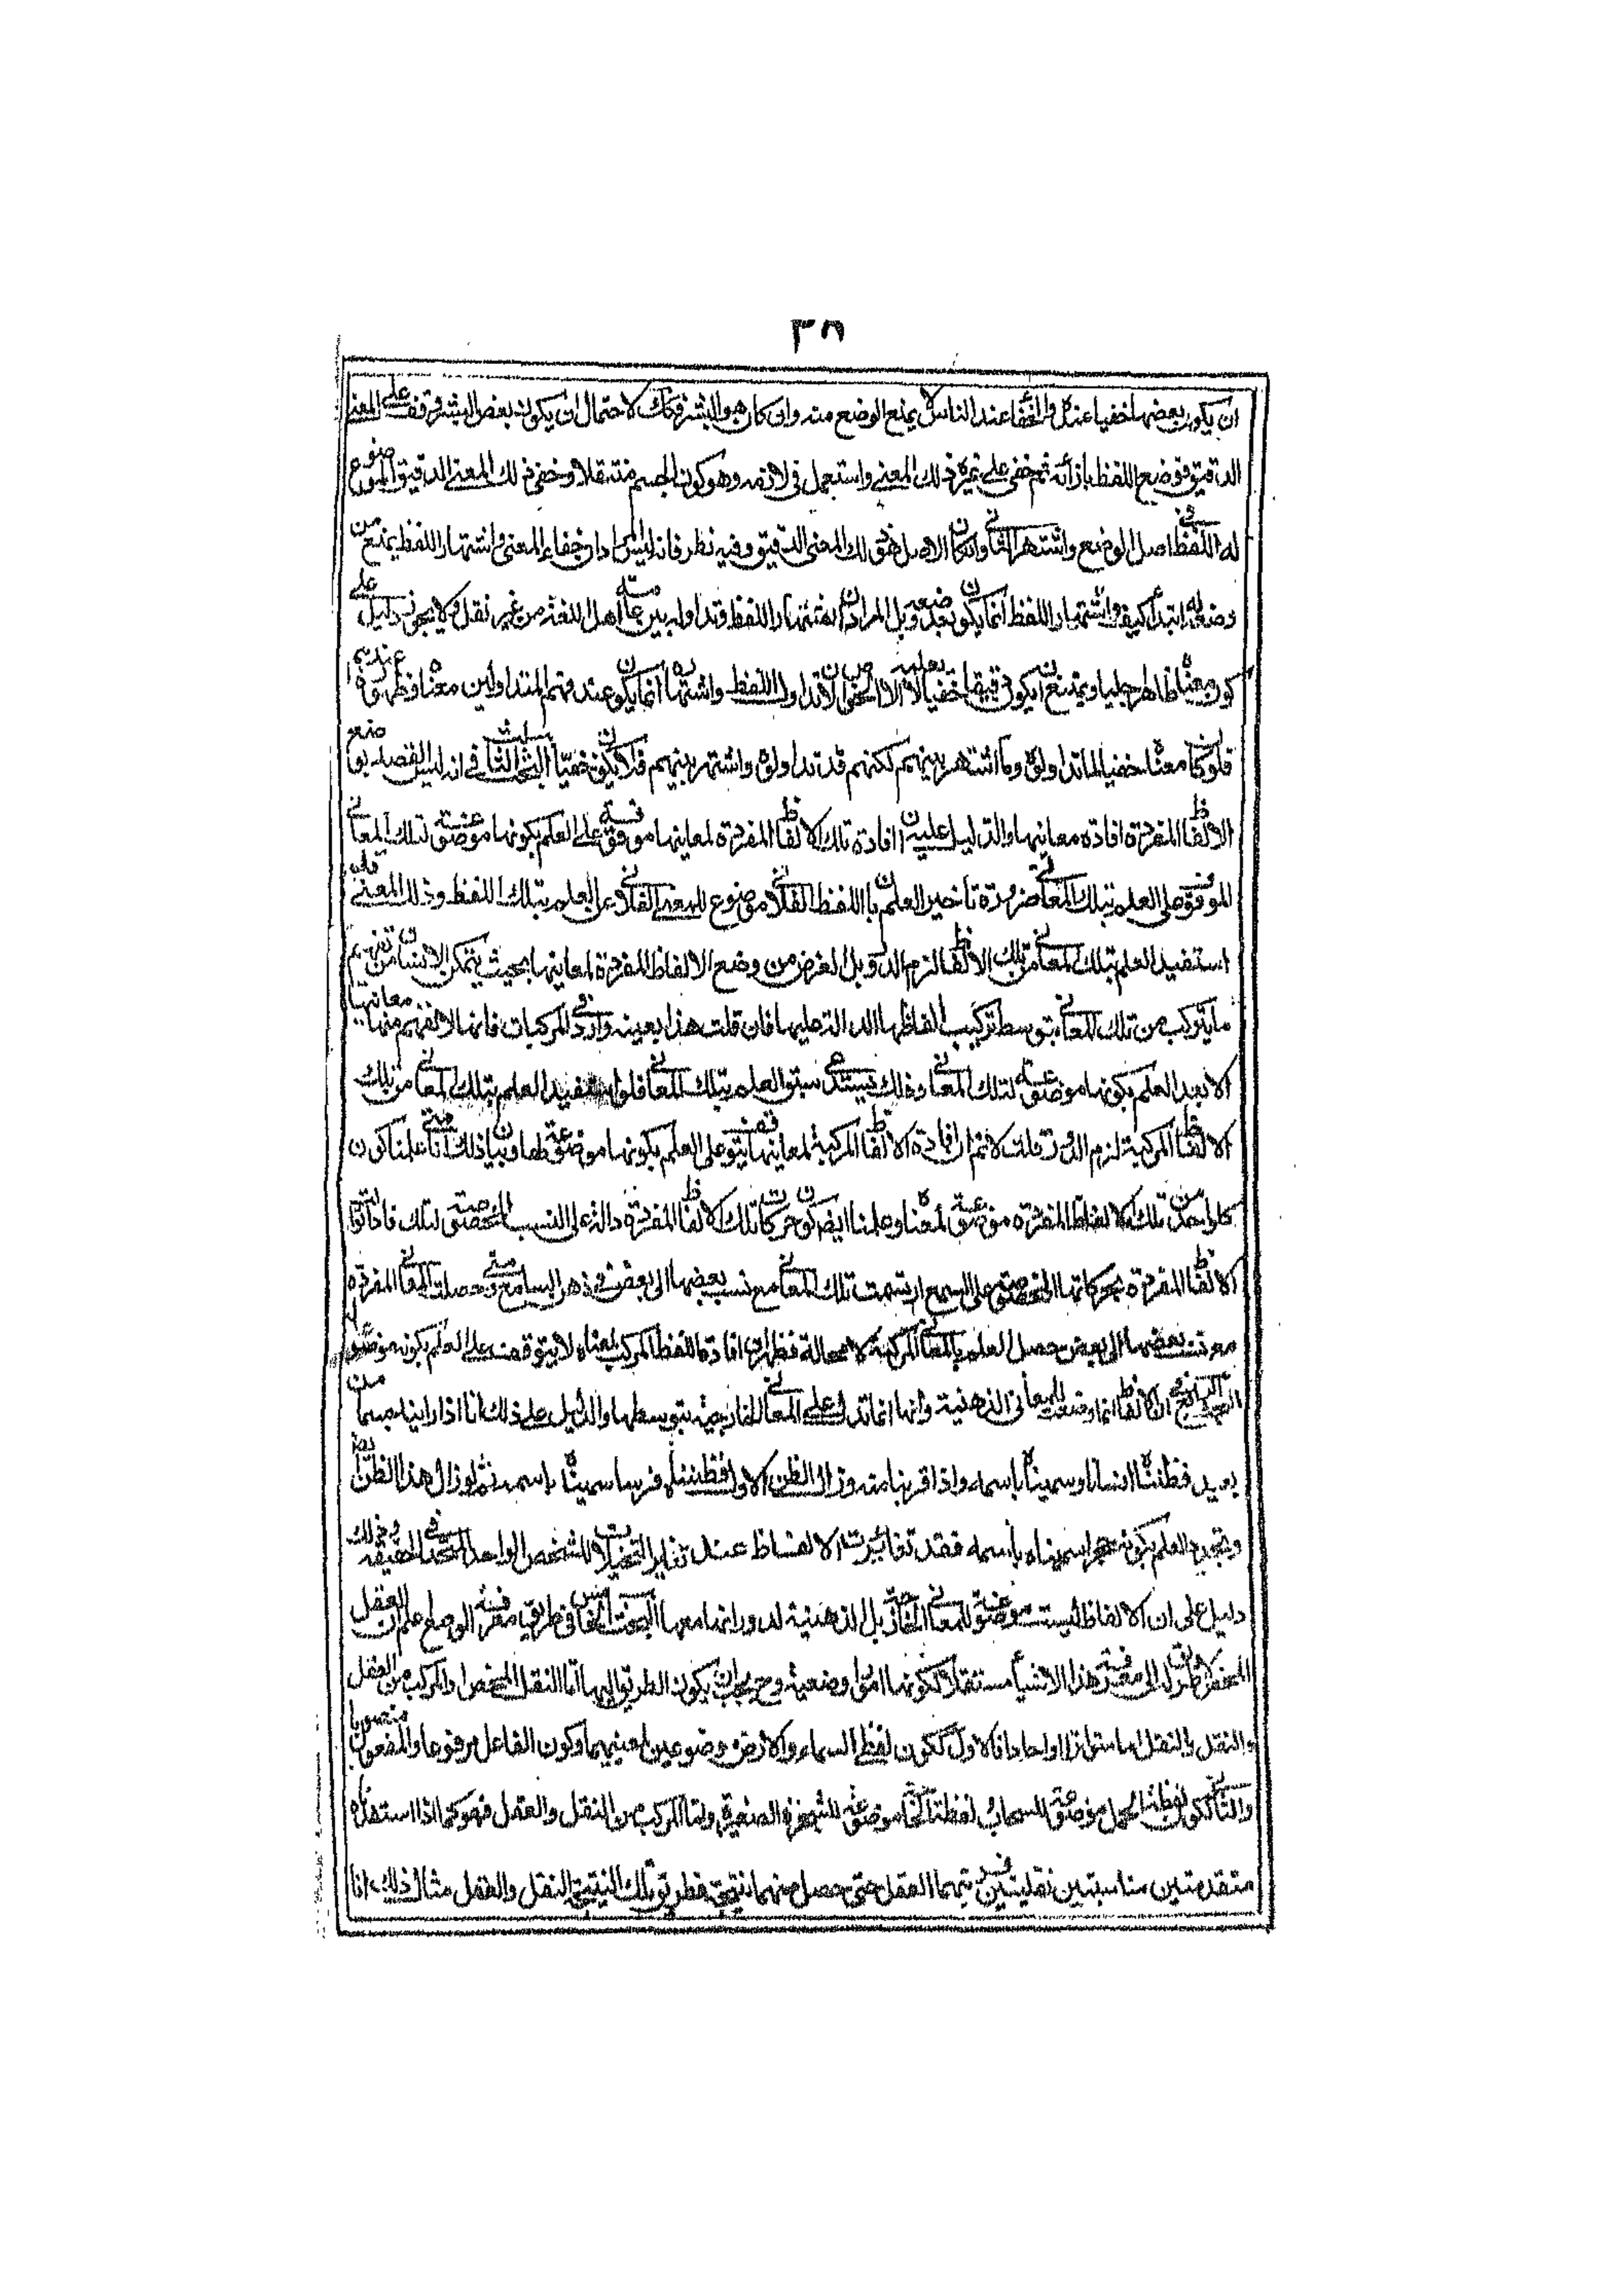 ٣٨
ان يكون بعضها خفيا عندك والخفا عند الناس لا يمنع الوضع منه وان كان هو البشر فكذلك لاحتمال ان يكون بعض البشر وقف على المعنى
الدقيق فوضع اللفظ بازائه ثم خفى على غيره ذلك المعنى واستعمل فى لازمه وهو كون الجسم منتقلا وخفى ذلك المعنى الدقيق الموضوع
له اللفظ فى اصل الوضع واشتهر الثانى وان كان الاصل هو ذلك المعنى الدقيق وفيه نظر فانه ليس المراد ان خفاء المعنى واشتهار اللفظ يمنع من
وضعه له ابتدأ كيف واشتهار اللفظ انما يكون بعد وضعه وبل المراد ان اشتهار اللفظ وتداوله بين عامة اهل اللغة من غير نقل ولا تجوز دليل على
كون معناه ظاهرا جليا ويمتنع ان يكون دقيقا خفيا لا يعلمه الا الخواص لان تداول اللفظ واشتهاره انما يكون عند فهم المتداولين معناه وظهوره عندهم
فلو كان معناه خفيا لما تداولوه وما اشتهر بينهم لكنهم قد تداولوه واشتهر بينهم فلا يكون خفيا البحث الثالث فى انه ليس القصد بوضع
الالفاظ المفردة افادة معانيها والدليل عليه ان افادة تلك الالفاظ المفردة لمعانيها موقوفة على العلم بكونها موضوعة لتلك المعانى
الموقوف على العلم بتلك المعانى ضرورة تأخير العلم بان اللفظ الفلانى موضوع للمعنى الفلانى عن العلم بتلك اللفظ وذلك المعنى فلو
استفيد العلم بتلك المعانى من تلك الالفاظ لزم الدور بل الغرض من وضع الالفاظ المفردة لمعانيها بحيث يتمكن الانسان من تفهيم
ما يتركب من تلك المعانى بتوسط تركيب الفاظها الدالة عليها فان قلت هذا بعينه وارد فى المركبات فانها لا تفهم منها معانيها
الا بعد العلم بكونها موضوعة لتلك المعانى وذلك يستدعى سبق العلم بتلك المعانى فلو استفيد العلم بتلك المعانى من تلك
الالفاظ المركبة لزم الدور قلت لا نم ان افادة الالفاظ المركبة لمعانيها يتوقف على العلم بكونها موضوعة لها وبيان ذلك انا متى علمنا كون
كل واحد من تلك الالفاظ المفردة موضوعة لمعناه وعلمنا ايضا كون حركات تلك الالفاظ المفردة دالة على النسب المخصوصة لتلك فاذا توالت
الالفاظ المفردة بحركاتها المخصوصة على السمع ارتسمت تلك المعانى مع نسب بعضها الى بعض فى ذهن السامع ومتى حصلت المعانى المفردة
مع نسب بعضها الى بعض حصل العلم بالمعانى المركبة لا محالة فظهر ان افادة اللفظ المركب لمعناه لا يتوقف على العلم بكونه موضوعا له
البحث الرابع ان الالفاظ انما وضعت للمعانى الذهنية وانها انما تدل على المعانى الخارجية بتوسطها والدليل على ذلك انا اذا راينا جسما من
بعيد فظنناه انسانا وسميناه باسمه واذا قربنا منه وزال الظن الاول فظنناه فرسا سميناه باسمه ثم لو زال هذا الظن ايضا
وتجدد العلم بكونه حجرا سميناه باسمه فقد تغايرت الالفاظ عند تغاير التخيلات للشخص الواحد المتحد الحقيقة وذلك
دليل على ان الالفاظ ليست موضوعة للمعانى الخارجة بل الذهنية لدورانها معها البحث الخامس فى طريق معرفة الوضع اعلم ان العقل
المحض لا طريق له الى معرفة هذا الاشياء مستقلا لكونها امورا وضعية وح يجب ان يكون الطريق اليها اما النقل المحض او المركب من العقل
والنقل والنقل اما متواترا او احادا فالاول ككون لفظ السماء والارض موضوعين لمعنييهما وكون الفاعل مرفوعا والمفعول منصوبا
والثانى ككون لفظتا موضوعة للسحاب لفظتا موضوعة للشجرة الصغيرة واما المركب من النقل والعقل فهو كما اذا استفدنا
مقدمتين مناسبتين نقليتين يتمهما العقل حتى حصل منهما نتيجة فطريق تلك النتيجة النقل والعقل مثال ذلك انا